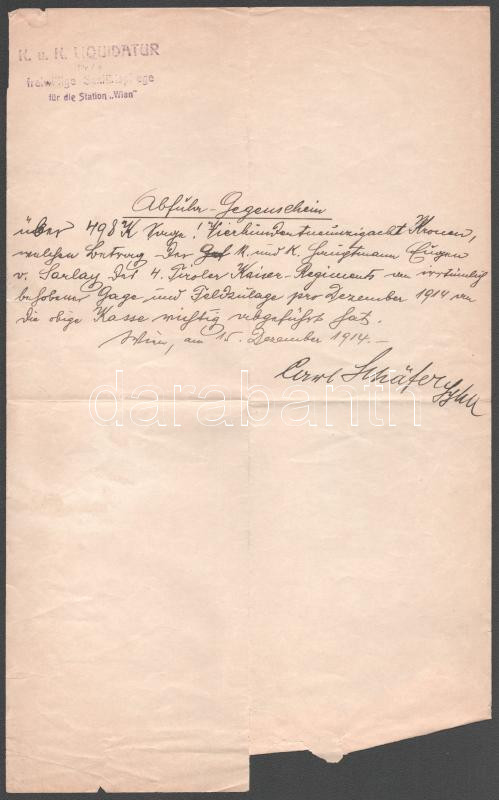 K. u. K. LIQUIDATUR
für die
freiwillige Sanitätspflege
für die Station „Wien"
Abfuhr-Gegenschein
über 498 K Sage! Vierhundertneunzigacht Kronen,
welchen Betrag der k. und k. Hauptmann Eugen
v. Sarlay des 4. Tiroler Kaiser-Regiments an irrtümlich
behobener Gage und Feldzulage pro Dezember 1914 an
die obige Kasse richtig abgeführt hat.
Wien, am 15. Dezember 1914.-
Carl Schäfer
darabanth